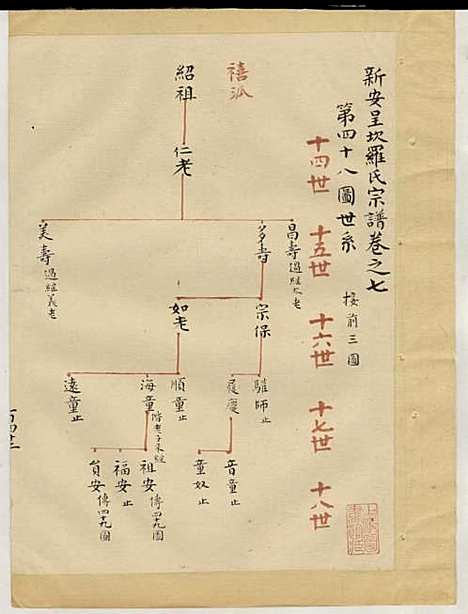 新安呈坎羅氏宗譜卷之七
第四十八圖世系 接前三圖
十四世 十五世 十六世 十七世 十八世
禧派
紹祖
仁老
昌壽 過繼仁老
多壽
美壽 過繼義老
宗保
如老
騅師 止
履慶
順童 止
海童
遠童 止
音童 止
童奴 止
祖安 傳四十九圖
福安 止
貟安 傳四十九圖